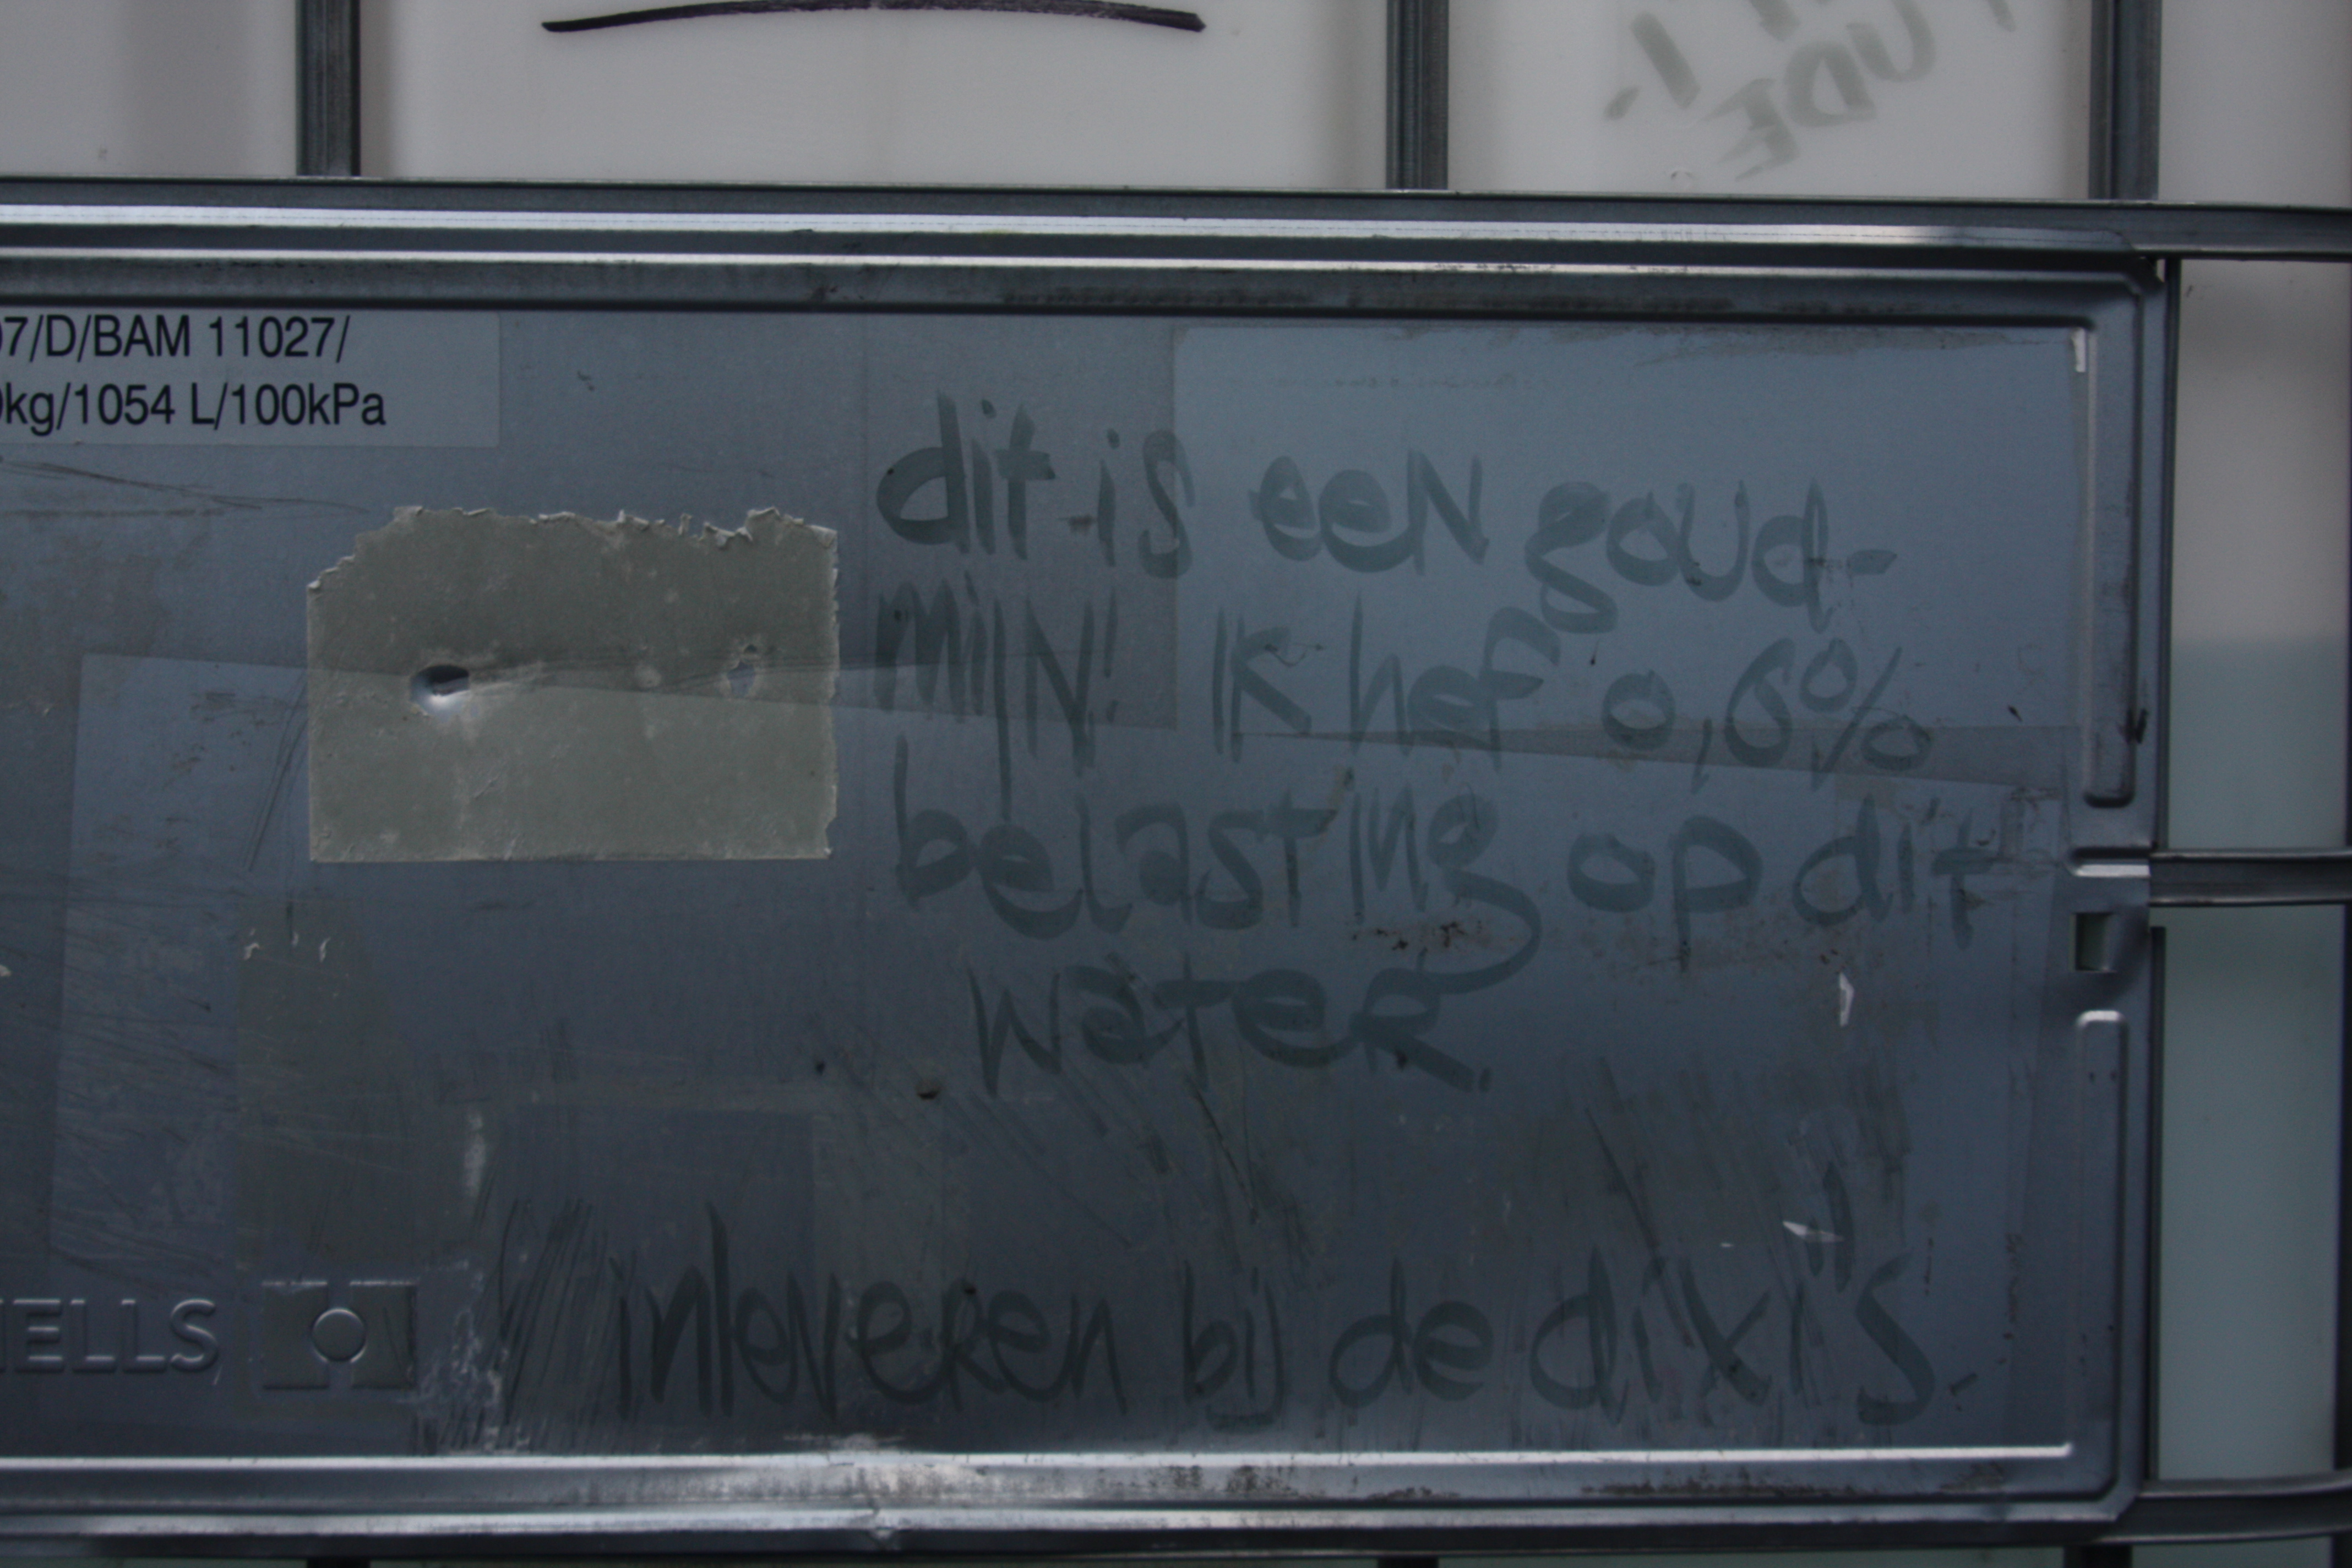 UDE!
07/D/BAM 11027/
0kg/1054 L/100kPa
dit is eeN goud-
mijN! IK hef 0,6%
belasting op dit
wateR.
inleveRen bij de dixi's.